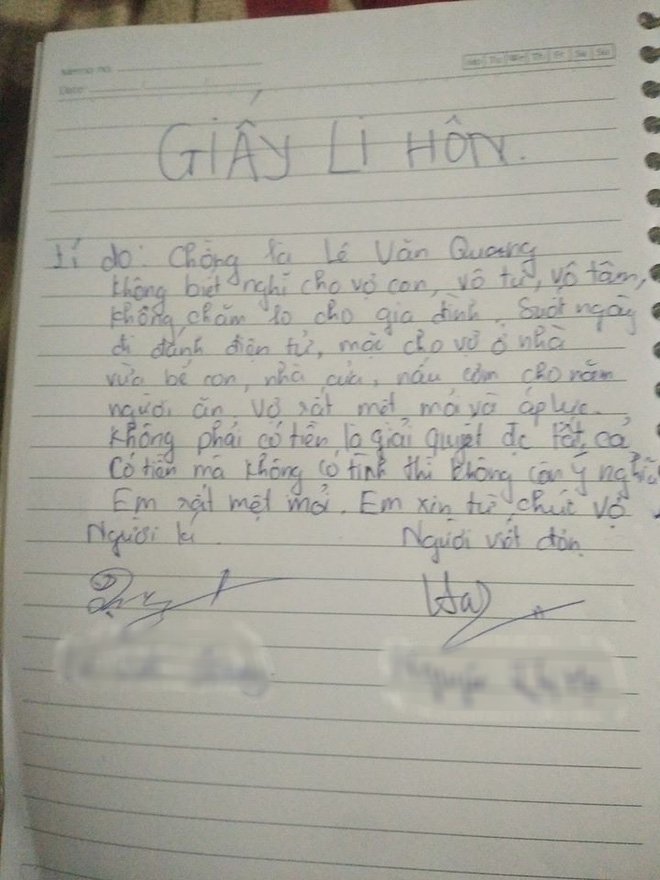 Memo no.
Date
Mo Tu We Th Fr Sa Su
GIẤY LI HÔN.
Lí do: Chồng là Lê Văn Quang
không biết nghĩ cho vợ con, vô tư, vô tâm,
không chăm lo cho gia đình. Suốt ngày
đi đánh điện tử, mặc cho vợ ở nhà
vừa bế con, nhà cửa, nấu cơm cho năm
người ăn. Vợ rất mệt mỏi và áp lực.
không phải có tiền là giải quyết đc tất cả
Có tiền mà không có tình thì không còn ý nghĩa
Em rất mệt mỏi. Em xin từ chức vợ
Người kí
Người viết đơn